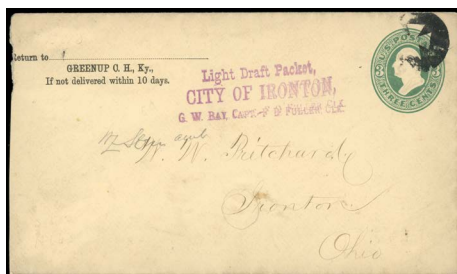 Return to
GREENUP C. H., Ky.,
If not delivered within 10 days.
Light Draft Packet,
CITY OF IRONTON,
G. W. BAY, CAPT.
U.S. POSTAGE
THREE CENTS
W. Pritchard
Ironton
Ohio